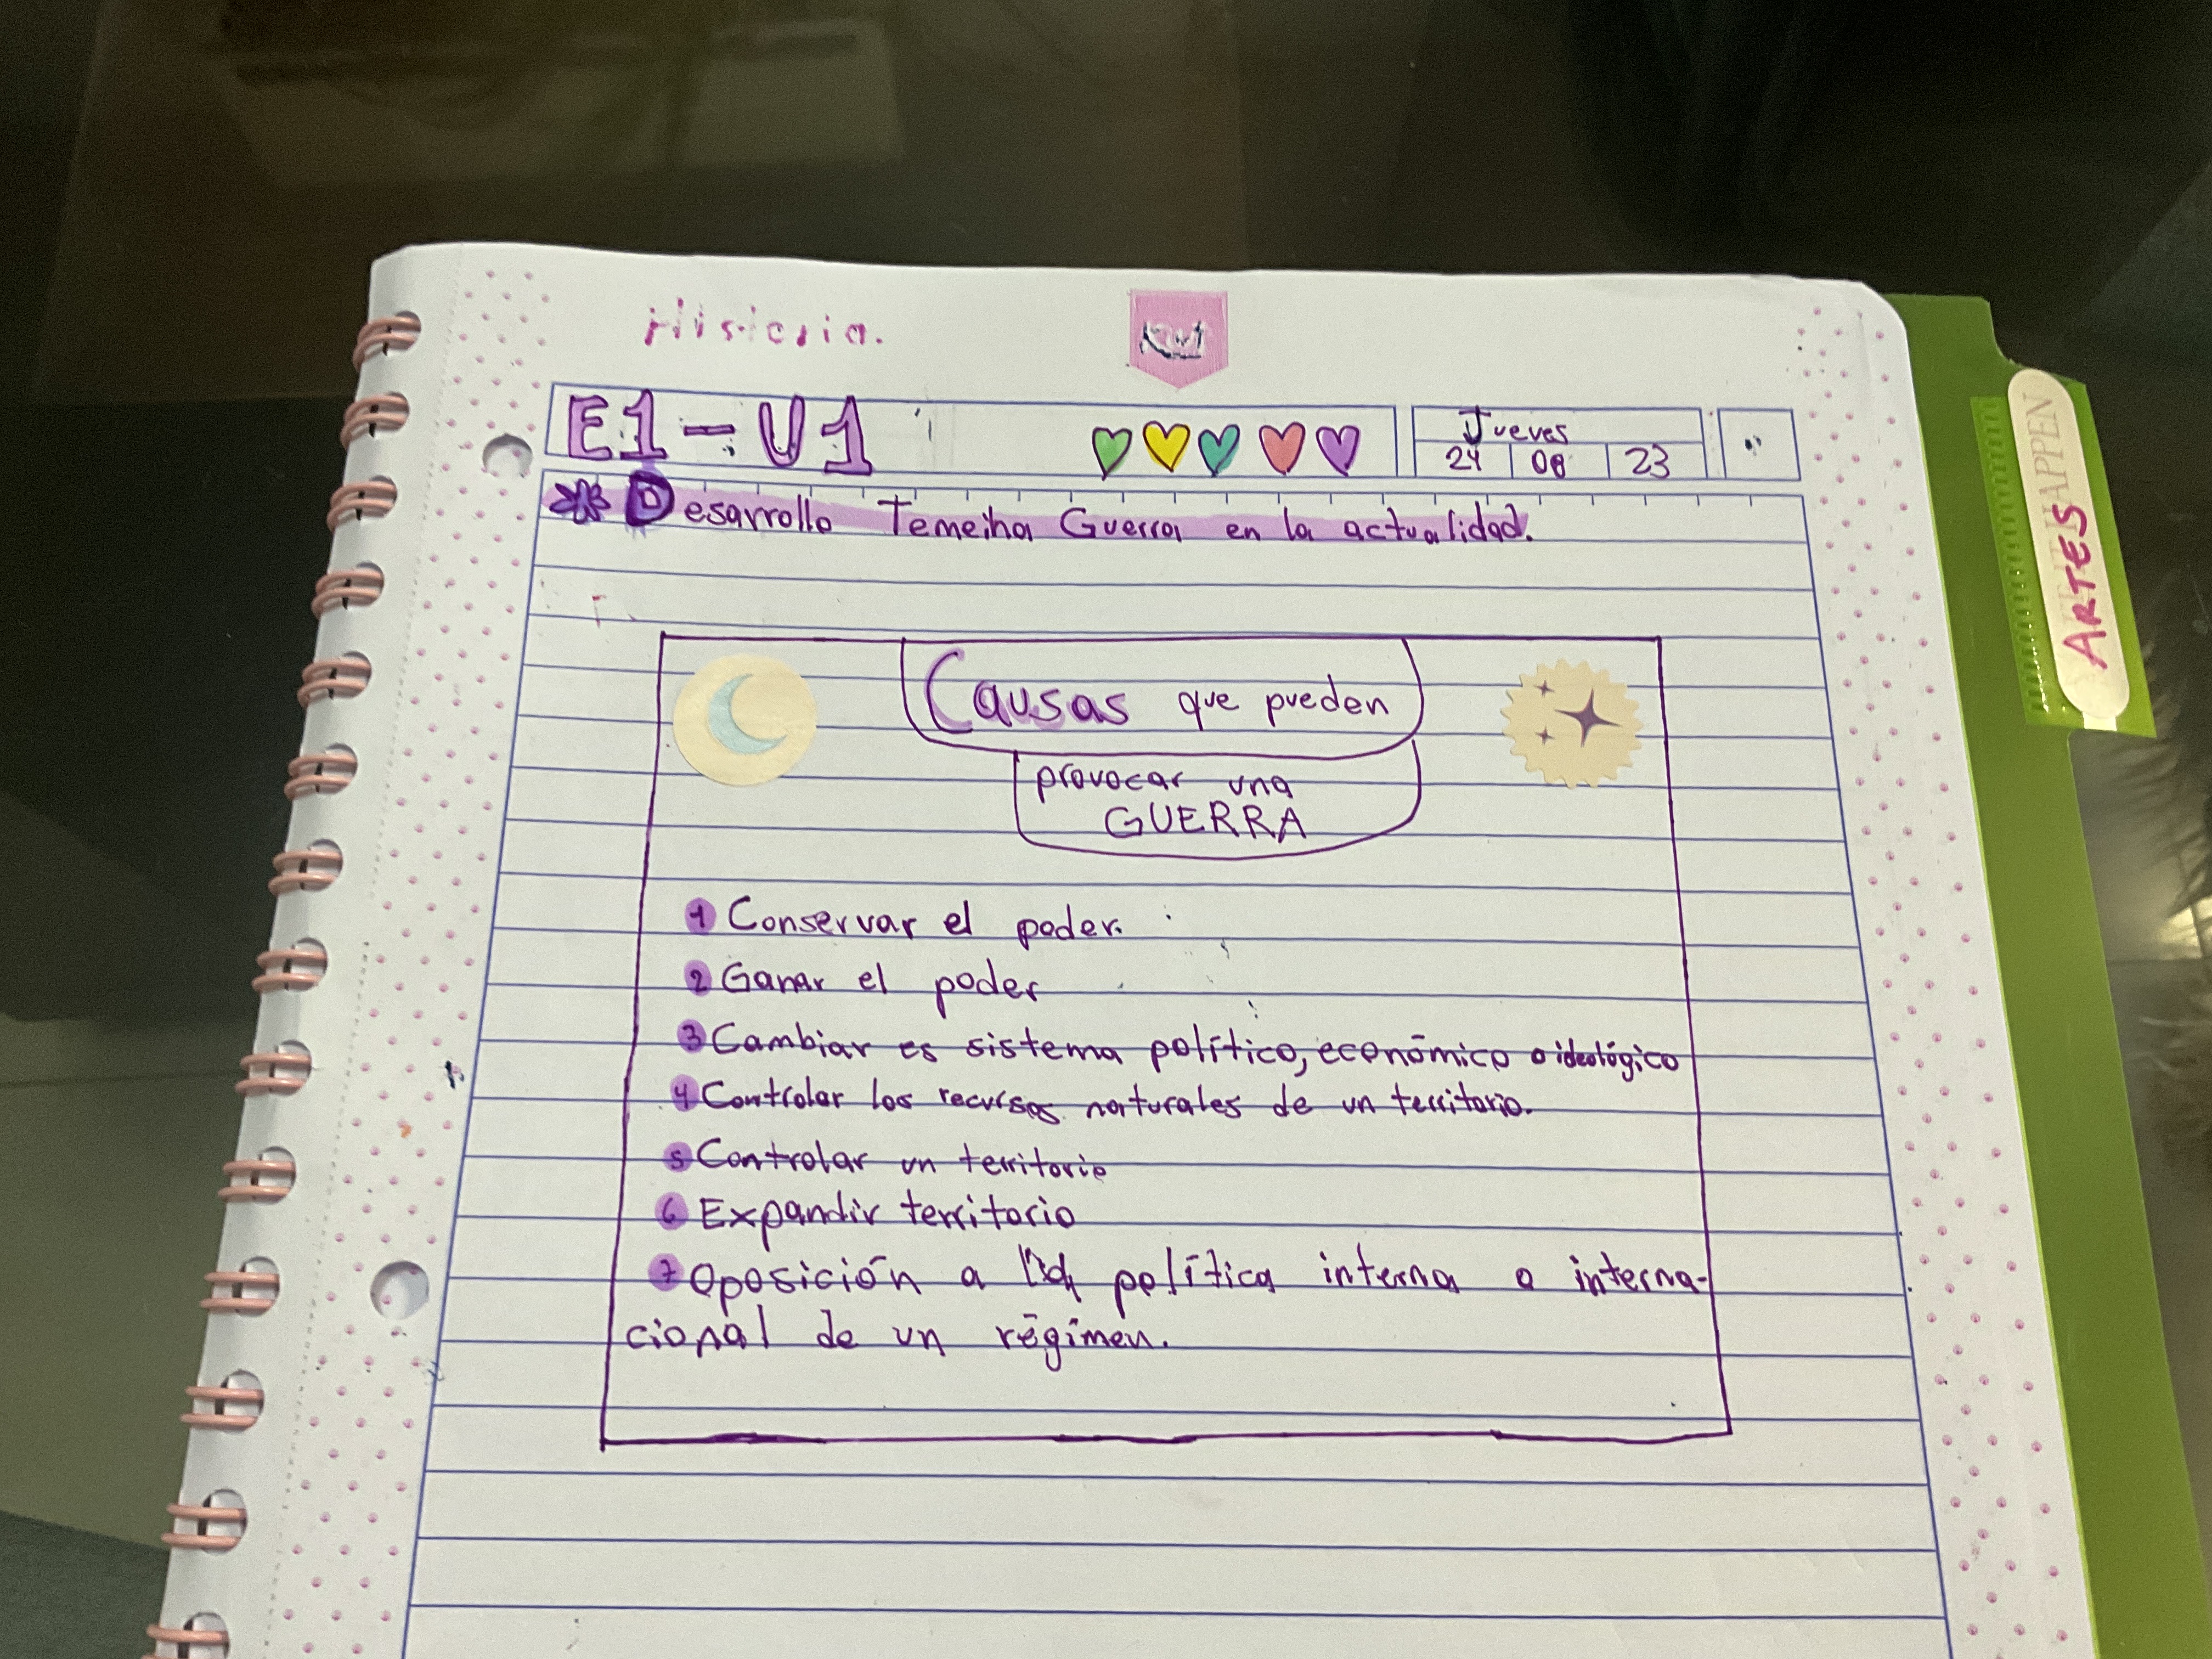 Historia.
Kiut
E1-U1
Jueves
24 08 23
Desarrollo Temeiha Guerra en la actualidad.
ARTES
Causas que pueden
provocar una
GUERRA
1 Conservar el poder.
2 Ganar el poder
3 Cambiar es sistema político, económico o ideológico
4 Controlar los recursos naturales de un territorio.
5 Controlar un territorio
6 Expandir territorio
7 Oposición a la política interna o interna-
cional de un régimen.